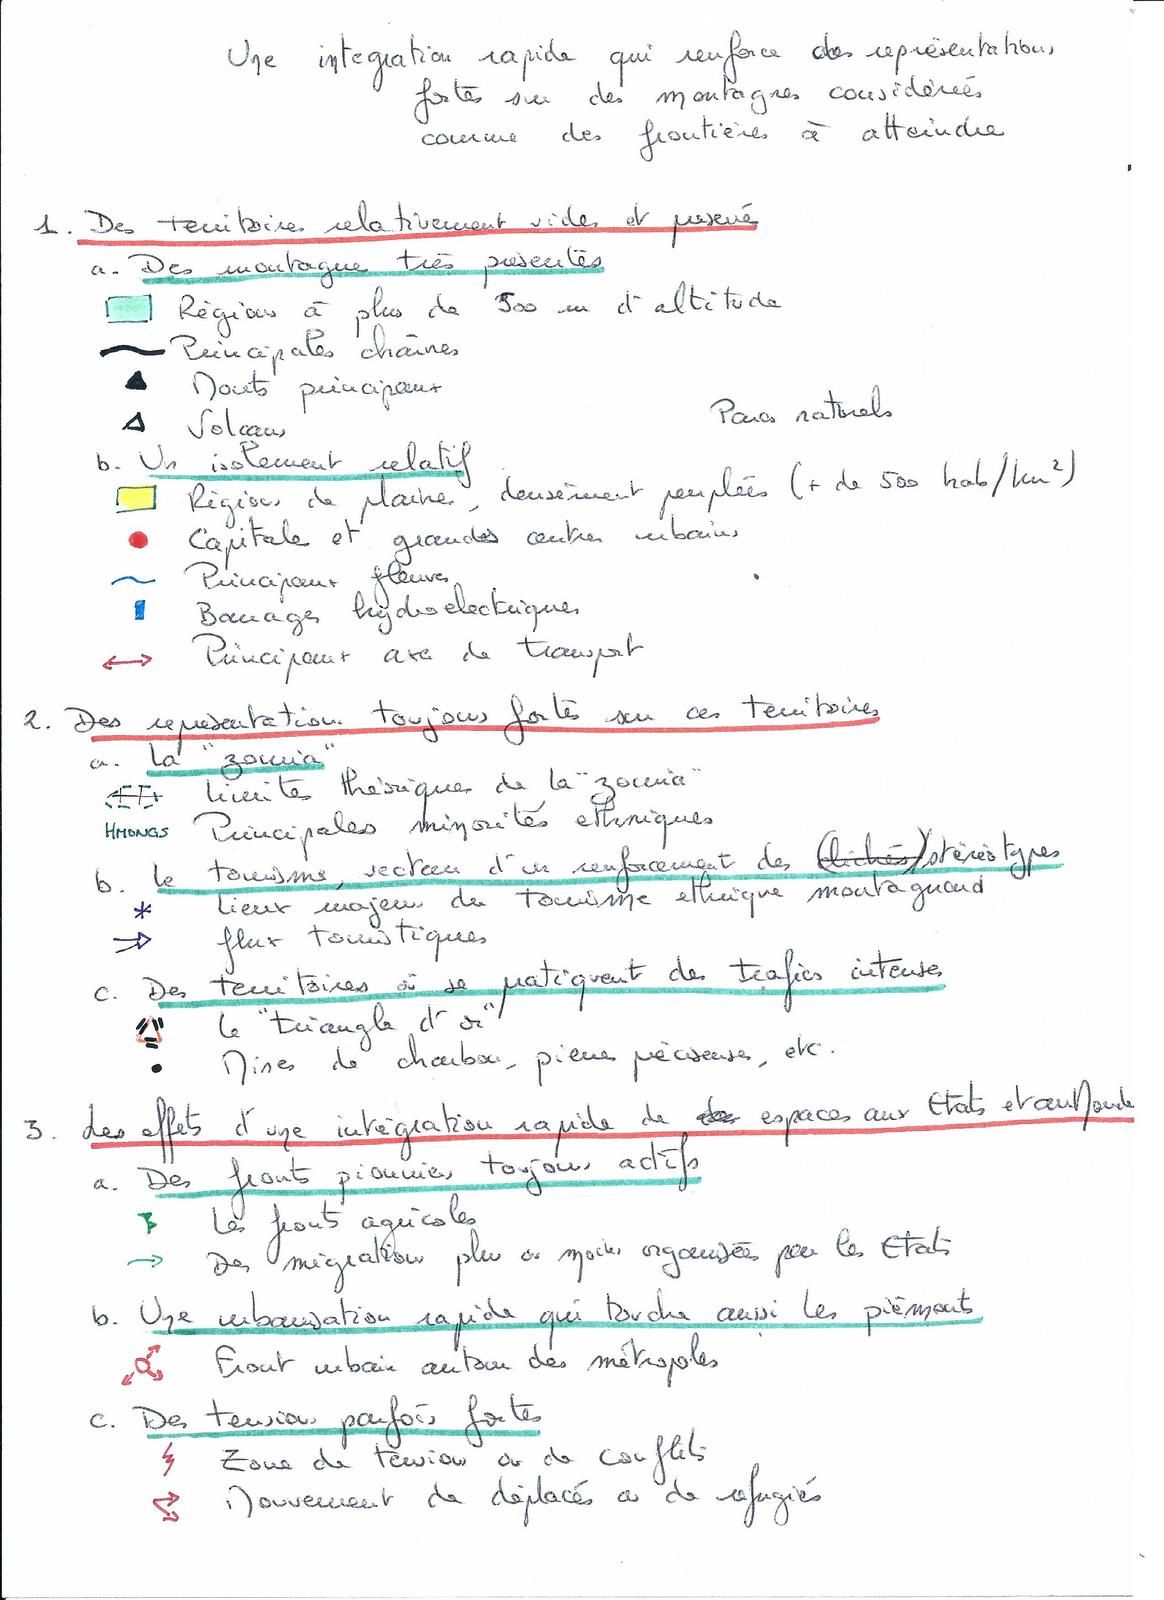 Une integration rapide qui renforce des représentations
fortes sur des montagnes considérées
comme des frontières à atteindre
1. Des territoires relativement vides et préservé
a. Des montagne très présentes
Régions à plus de 500 m d'altitude
Principales chaînes
Monts principaux
Volcans
Parcs naturels
b. Un isolement relatif
Régions de plaine, densément peuplées (+ de 500 hab/km²)
Capitale et grandes centres urbains
Principaux fleuves
Barrages hydroelectriques
Principaux axe de transport
2. Des représentations toujours fortes sur ces territoires
a. La "zomia"
Limites théoriques de la "zomia"
HMONGS Principales minorités ethniques
b. Le tourisme, secteur d'un renforcement des (clichés)/stéréotypes
Lieux majeurs du tourisme ethnique montagnard
flux touristiques
c. Des territoires où se pratiquent des trafics intenses
Le "triangle d'or"
Mines de charbon, pierres précieuses, etc.
3. Les effets d'une intégration rapide de espaces aux Etats et au Monde
a. Des fronts pionniers toujours actifs
Les fronts agricoles
Des migrations plus ou moins organisées par les Etats
b. Une urbanisation rapide qui touche aussi les piémonts
Front urbain autour des métropoles
c. Des tensions parfois fortes
Zone de tension ou de conflits
Mouvement de déplacés ou de refugiés